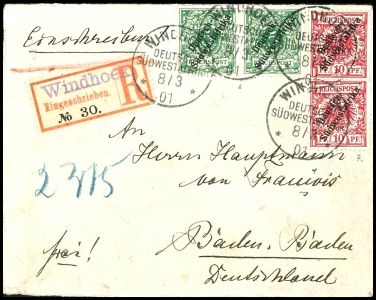 Einschreiben
Windhoek
Eingeschrieben.
R
№ 30.
WINDHOEK
DEUTSCH-
SÜDWESTAFRIKA
8/3
01
WINDHOEK
DEUTSCH-
SÜDWESTAFRIKA
8/3
01
REICHSPOST
10 PF.
REICHSPOST
10 PF.
An
Herrn Hauptmann
von François
2315
frei!
Baden-Baden
Deutschland